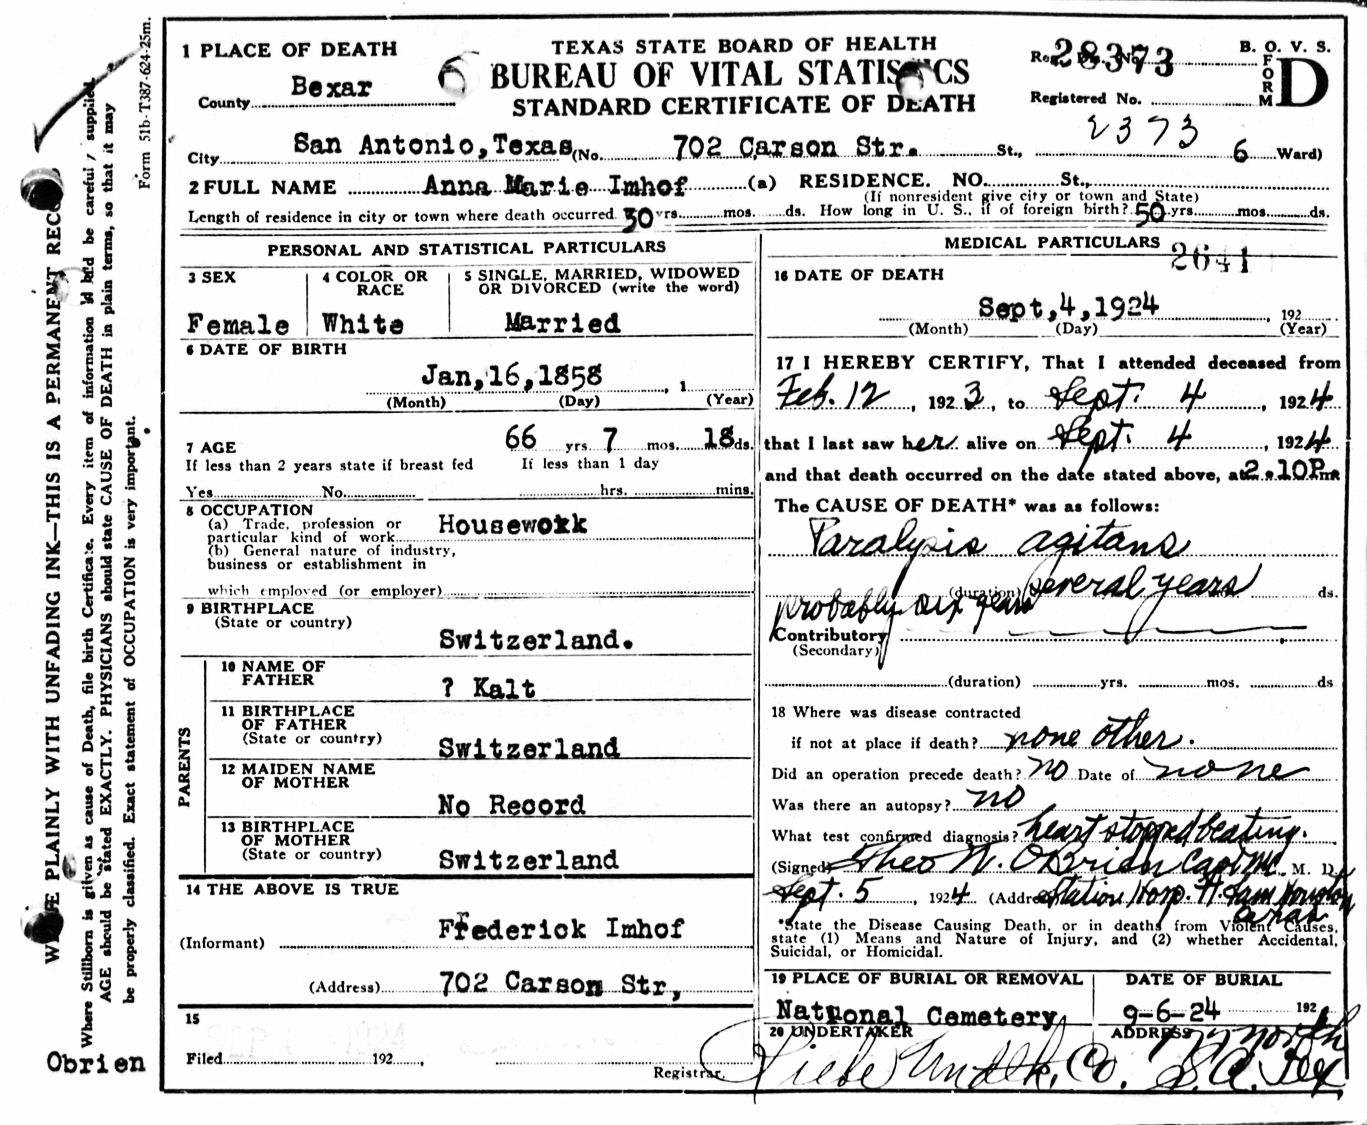 Form 51b-T387-624-25m.
WRITE PLAINLY WITH UNFADING INK—THIS IS A PERMANENT RECORD
Where Stillborn is given as cause of Death, file birth Certificate. Every item of information should be carefully supplied.
AGE should be stated EXACTLY. PHYSICIANS should state CAUSE OF DEATH in plain terms, so that it may
be properly classified. Exact statement of OCCUPATION is very important.
Obrien
1 PLACE OF DEATH
County Bexar
TEXAS STATE BOARD OF HEALTH
BUREAU OF VITAL STATISTICS
STANDARD CERTIFICATE OF DEATH
28373
B. O. V. S.
FORM D
Registered No. 2373
City San Antonio,Texas (No. 702 Carson Str. St., 6 Ward)
2 FULL NAME Anna Marie Imhof (a) RESIDENCE. NO. St.,
(If nonresident give city or town and State)
Length of residence in city or town where death occurred 30 yrs. mos. ds. How long in U. S., if of foreign birth? 50 yrs. mos. ds.
PERSONAL AND STATISTICAL PARTICULARS
3 SEX
Female
4 COLOR OR RACE
White
5 SINGLE, MARRIED, WIDOWED
OR DIVORCED (write the word)
Married
6 DATE OF BIRTH
Jan,16,1858 , 1
(Month) (Day) (Year)
7 AGE 66 yrs. 7 mos. 18 ds.
If less than 2 years state if breast fed If less than 1 day
Yes No. hrs. mins.
8 OCCUPATION
(a) Trade, profession or
particular kind of work Housework
(b) General nature of industry,
business or establishment in
which employed (or employer)
9 BIRTHPLACE
(State or country)
Switzerland.
PARENTS
10 NAME OF
FATHER
? Kalt
11 BIRTHPLACE
OF FATHER
(State or country)
Switzerland
12 MAIDEN NAME
OF MOTHER
No Record
13 BIRTHPLACE
OF MOTHER
(State or country)
Switzerland
14 THE ABOVE IS TRUE
(Informant) Frederick Imhof
(Address) 702 Carson Str,
15
Filed 192 ,
Registrar.
MEDICAL PARTICULARS
2641
16 DATE OF DEATH
Sept,4,1924 , 192
(Month) (Day) (Year)
17 I HEREBY CERTIFY, That I attended deceased from
Feb. 12 , 192 3, to Sept. 4 , 1924
that I last saw her alive on Sept. 4 , 1924
and that death occurred on the date stated above, at 2.10P m
The CAUSE OF DEATH* was as follows:
Paralysis agitans
(duration) several years ds.
probably six years
Contributory
(Secondary)
(duration) yrs. mos. ds
18 Where was disease contracted
if not at place if death? none other.
Did an operation precede death? no Date of none
Was there an autopsy? no
What test confirmed diagnosis? heart stopped beating.
(Signed) Theo W. O'Brien Capt MC M. D.
Sept. 5 , 1924 (Address) Station Hosp. Ft. Sam Houston
Texas
*State the Disease Causing Death, or in deaths from Violent Causes,
state (1) Means and Nature of Injury, and (2) whether Accidental,
Suicidal, or Homicidal.
19 PLACE OF BURIAL OR REMOVAL
National Cemetery
DATE OF BURIAL
9-6-24 192
20 UNDERTAKER
Riebe Undtk. Co.
ADDRESS
North
S.A. Tex